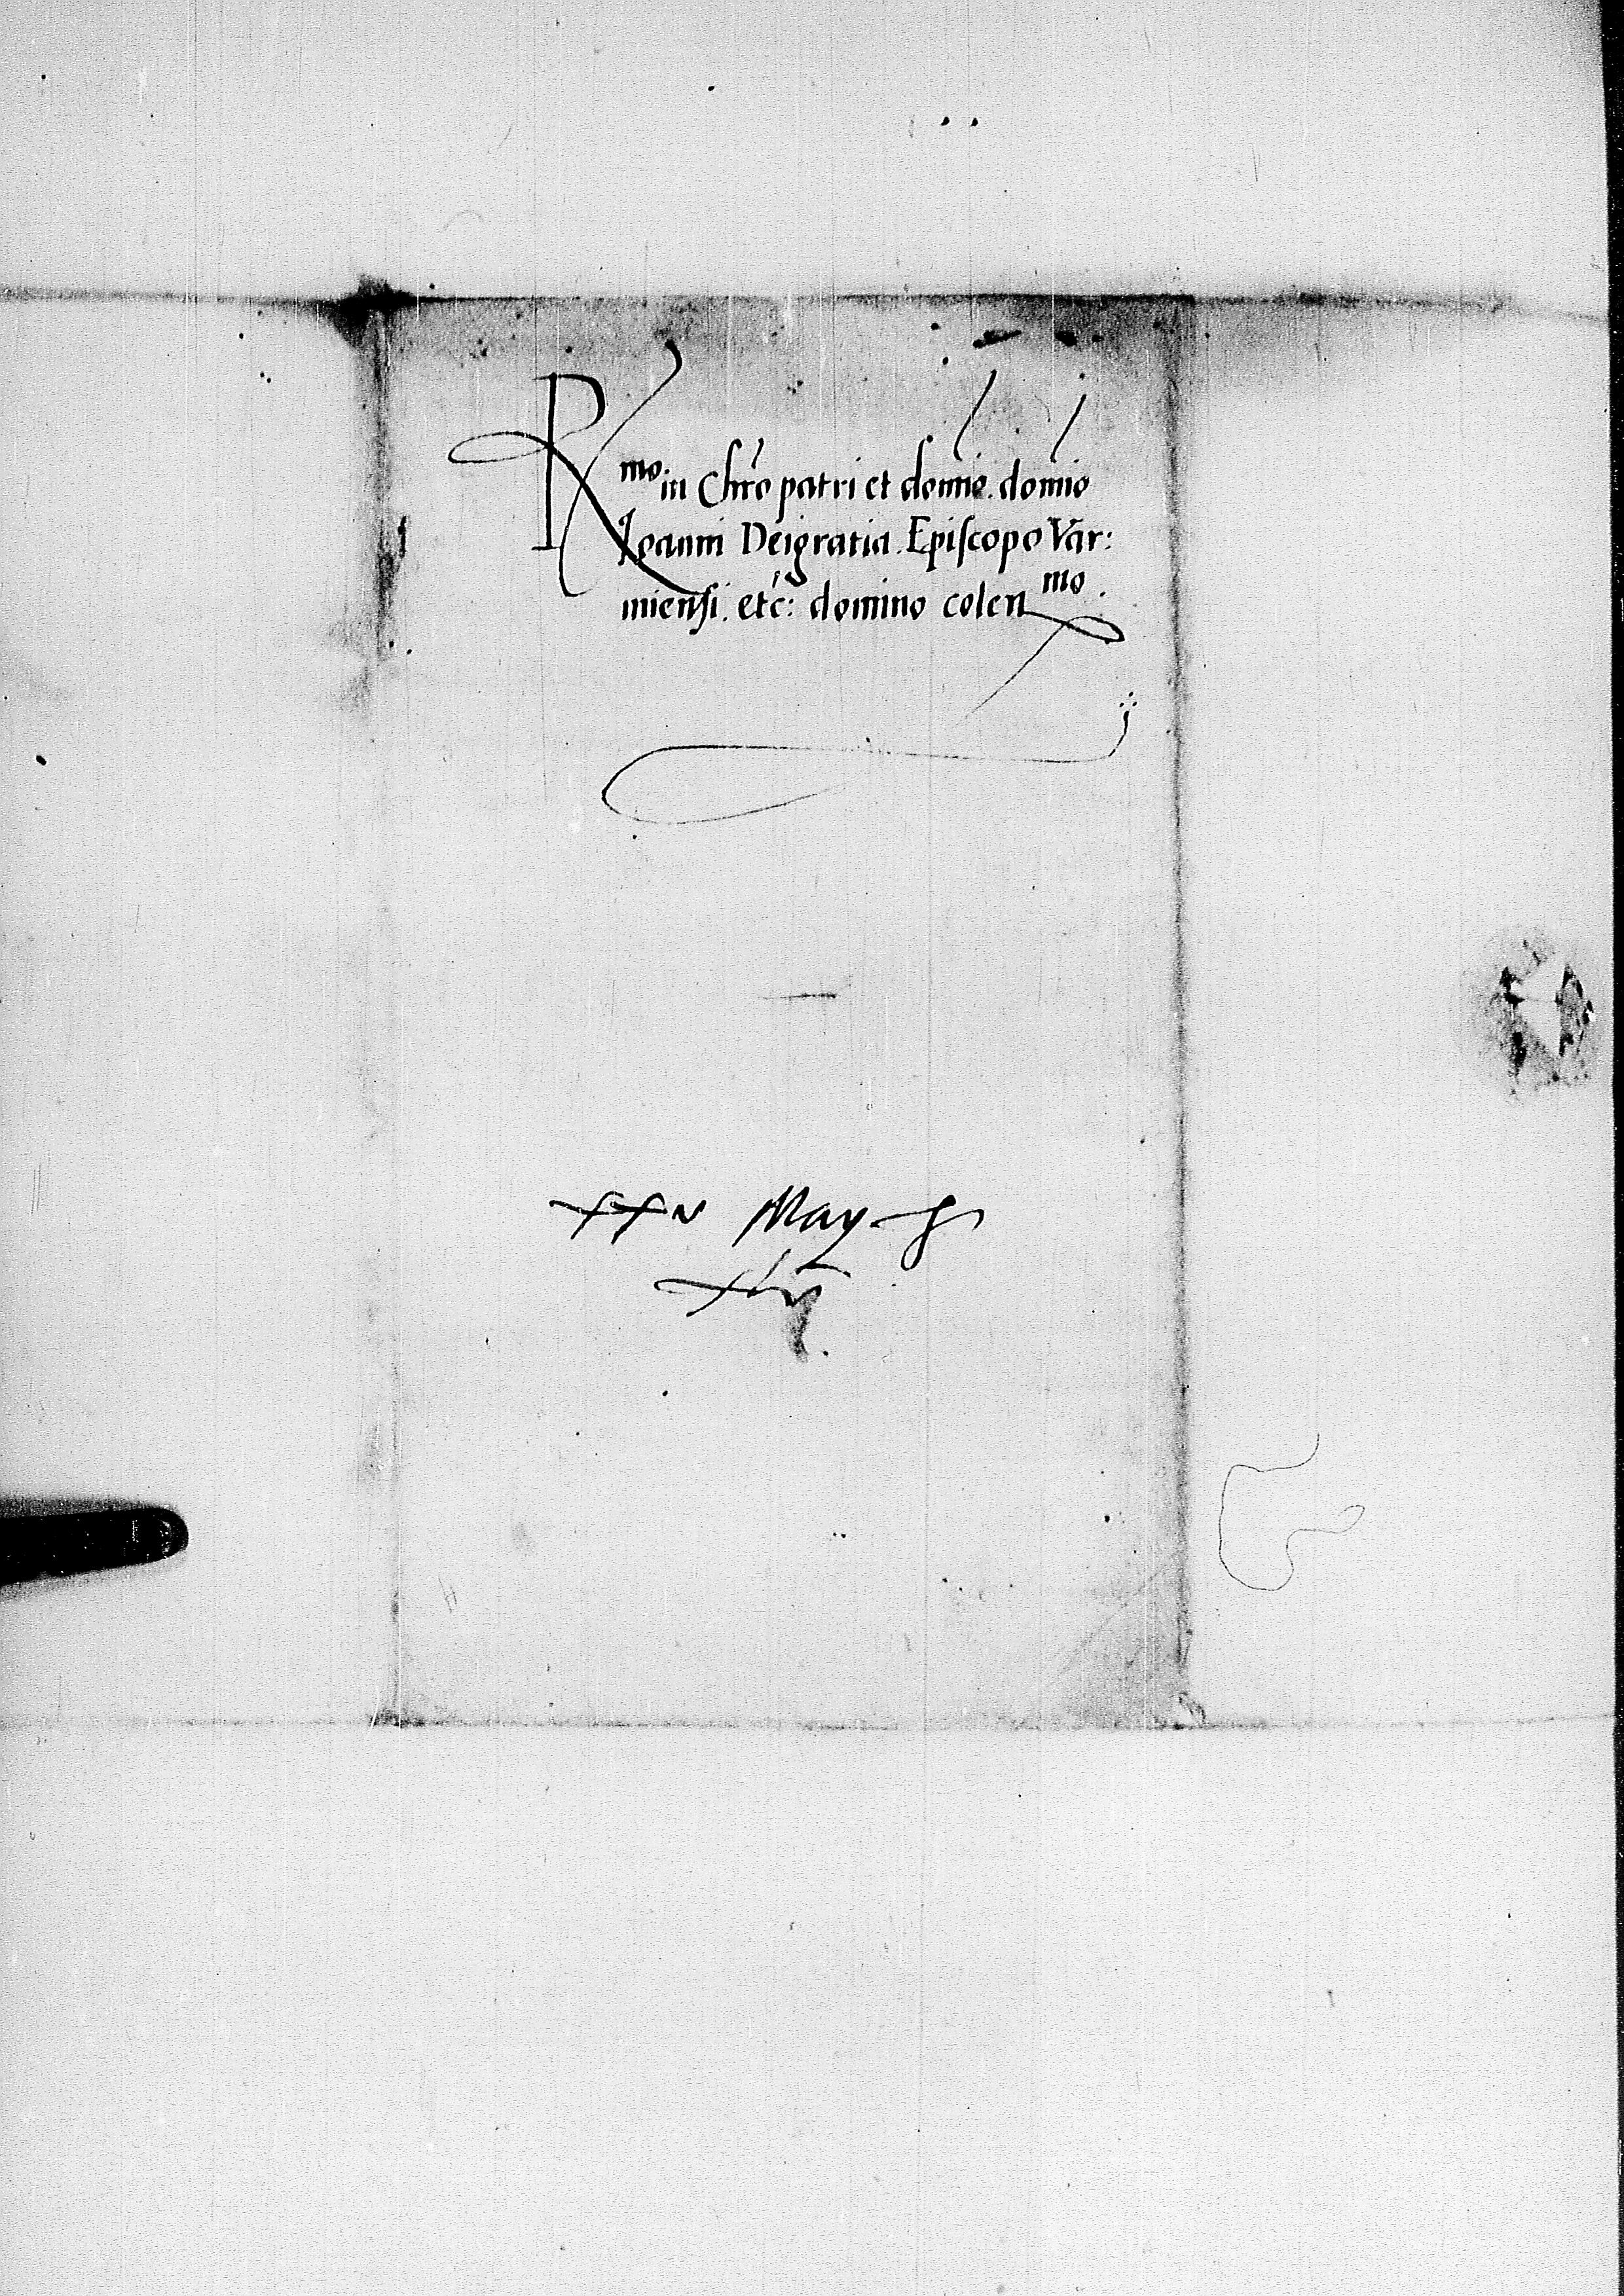 R^mo. in Chr̃o patri et domĩo. domĩo
Ioanni Dei gratia. Episcopo Var:
miensi. etc̃: domino colen^mo.
xxv May